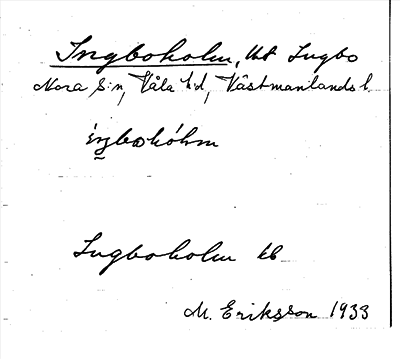 Ingboholm, Ut Ingbo
Nora s:n, Våla h:d, Västmanlands l.
íŋbohólm
Ingboholm
M. Eriksson 1933